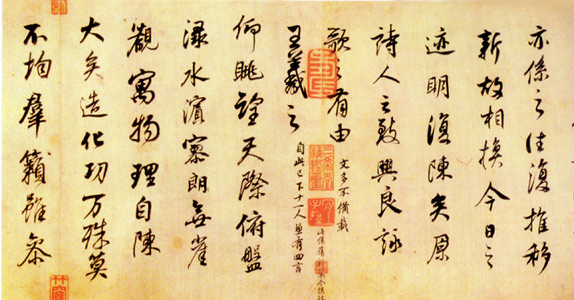 亦係之往復推移
新故相換今日之
迹明復陳矣原
詩人之致興良詠
歌之有由
文多不備載
王羲之
自此已下十一人並有四言
仰眺望天際俯盤
淥水濱寥朗無崖
觀寓物理自陳
大矣造化功万殊莫
不均羣籟雖參